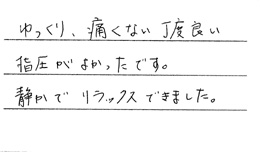 ゆっくり、痛くない丁度良い
指圧がよかったです。
静かで リラックスできました。